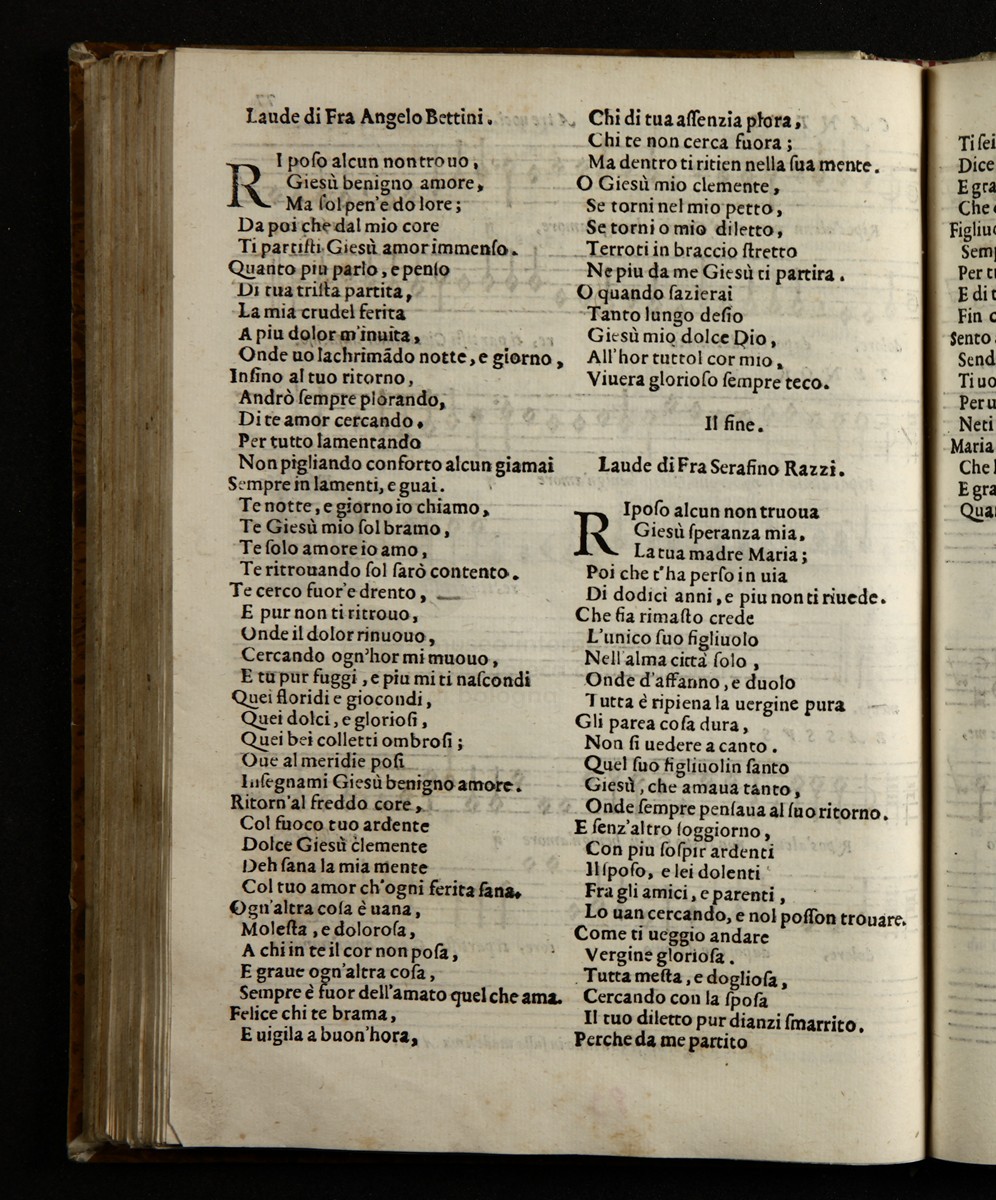 Laude di Fra Angelo Bettini.
RI poſo alcun non trouo,
Gieſù benigno amore,
Ma ſol pen'e dolore;
Da poi che dal mio core
Ti partiſti Gieſù amor immenſo.
Quanto piu parlo, e penſo
Di tua triſta partita,
La mia crudel ferita
A piu dolor m'inuita,
Onde uo lachrimãdo notte, e giorno,
Inſino al tuo ritorno,
Andrò ſempre plorando,
Di te amor cercando.
Per tutto lamentando
Non pigliando conforto alcun giamai
Sempre in lamenti, e guai.
Te notte, e giorno io chiamo,
Te Gieſù mio ſol bramo,
Te ſolo amore io amo,
Te ritrouando ſol ſarò contento.
Te cerco fuor'e drento,
E pur non ti ritrouo,
Onde il dolor rinuouo,
Cercando ogn'hor mi muouo,
E tu pur fuggi, e piu mi ti naſcondi
Quei floridi e giocondi,
Quei dolci, e glorioſi,
Quei bei colletti ombroſi;
Oue al meridie poſi
Inſegnami Gieſù benigno amore.
Ritorn'al freddo core,
Col fuoco tuo ardente
Dolce Gieſù clemente
Deh ſana la mia mente
Col tuo amor ch'ogni ferita ſana.
Ogn'altra coſa è uana,
Moleſta, e doloroſa,
A chi in te il cor non poſa,
E graue ogn'altra coſa,
Sempre è fuor dell'amato quel che ama.
Felice chi te brama,
E uigila a buon'hora,
Chi di tua aſſenzia plora,
Chi te non cerca fuora;
Ma dentro ti ritien nella ſua mente.
O Gieſù mio clemente,
Se torni nel mio petto,
Se torni o mio diletto,
Terroti in braccio ſtretto
Ne piu da me Gieſù ti partira.
O quando ſazierai
Tanto lungo deſio
Gieſù mio dolce Dio,
All'hor tuttol cor mio,
Viuera glorioſo ſempre teco.
Il fine.
Laude di Fra Serafino Razzi.
RIpoſo alcun non truoua
Gieſù ſperanza mia,
La tua madre Maria;
Poi che t'ha perſo in uia
Di dodici anni, e piu non ti riuede.
Che ſia rimaſto crede
L'unico ſuo figliuolo
Nell'alma città ſolo,
Onde d'affanno, e duolo
Tutta è ripiena la uergine pura
Gli parea coſa dura,
Non ſi uedere a canto.
Quel ſuo figliuolin ſanto
Gieſù, che amaua tanto,
Onde ſempre penſaua al ſuo ritorno.
E ſenz'altro ſoggiorno,
Con piu ſoſpir ardenti
Il ſpoſo, e lei dolenti
Fra gli amici, e parenti,
Lo uan cercando, e nol poſſon trouare.
Come ti ueggio andare
Vergine glorioſa.
Tutta meſta, e doglioſa,
Cercando con la ſpoſa
Il tuo diletto pur dianzi ſmarrito.
Perche da me partito
Ti ſei
Dice
E gra
Che
Figliuo
Sem
Per t
E di t
Fin c
Sento
Send
Ti uo
Per u
Neti
Maria
Che
E gra
Qua